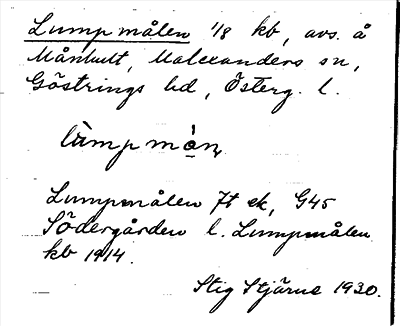 Lumpmålen 1/8 kb, avs. å
Månhult, Malexanders sn,
Göstrings hd, Österg. l.
lùmpmå̀n
Lumpmålen Jt ek, G45
Södergården l. Lumpmålen
kb 1914.
Stig Stjärne 1930.